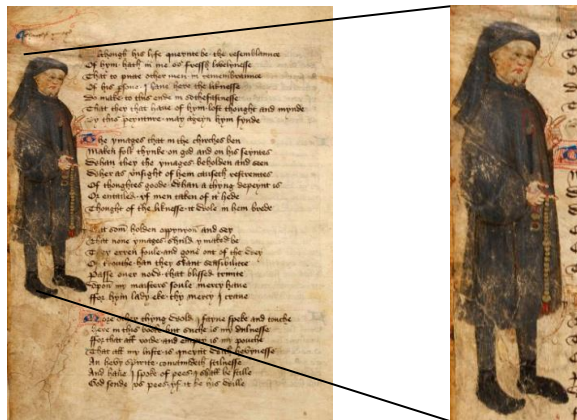 Although his life queynte be the resemblaunce
Of hym hath in me so fressh lyvelynesse
That to putte other men in remembraunce
Of his persone I have here the liknesse
Do make to this ende in sothfastnesse
That they that have of hym lost thought and mynde
By this peynture may ageyn hym fynde
The ymages that in the chirches ben
Maken folk thynke on god and on his seyntes
Whan they the ymages beholden and seen
Wher as unsight of hem causeth restreintes
Of thoughtes goode whan a thyng depeynt is
Or entailed yf men taken of it hede
Thought of the liknesse it wole in hem brede
Yit som holden oppynyon and sey
That none ymages shuld ymaked be
They erren foule and gone out of the wey
Of trouthe han they skant sensibilitee
Passe over now that blissed trinite
Upon my maisters soule mercy have
ffor hym lady eke thy mercy I crave
More other thyng wold I fayne speke and touche
here in this book but suche is my dulnesse
ffor that all voide and empty is my pouche
That all my luste is queynt with hevynesse
An hevy spirite comaundeth stilnesse
And have I spoke of pees I shall be stille
God sende us pees yf it be his wille